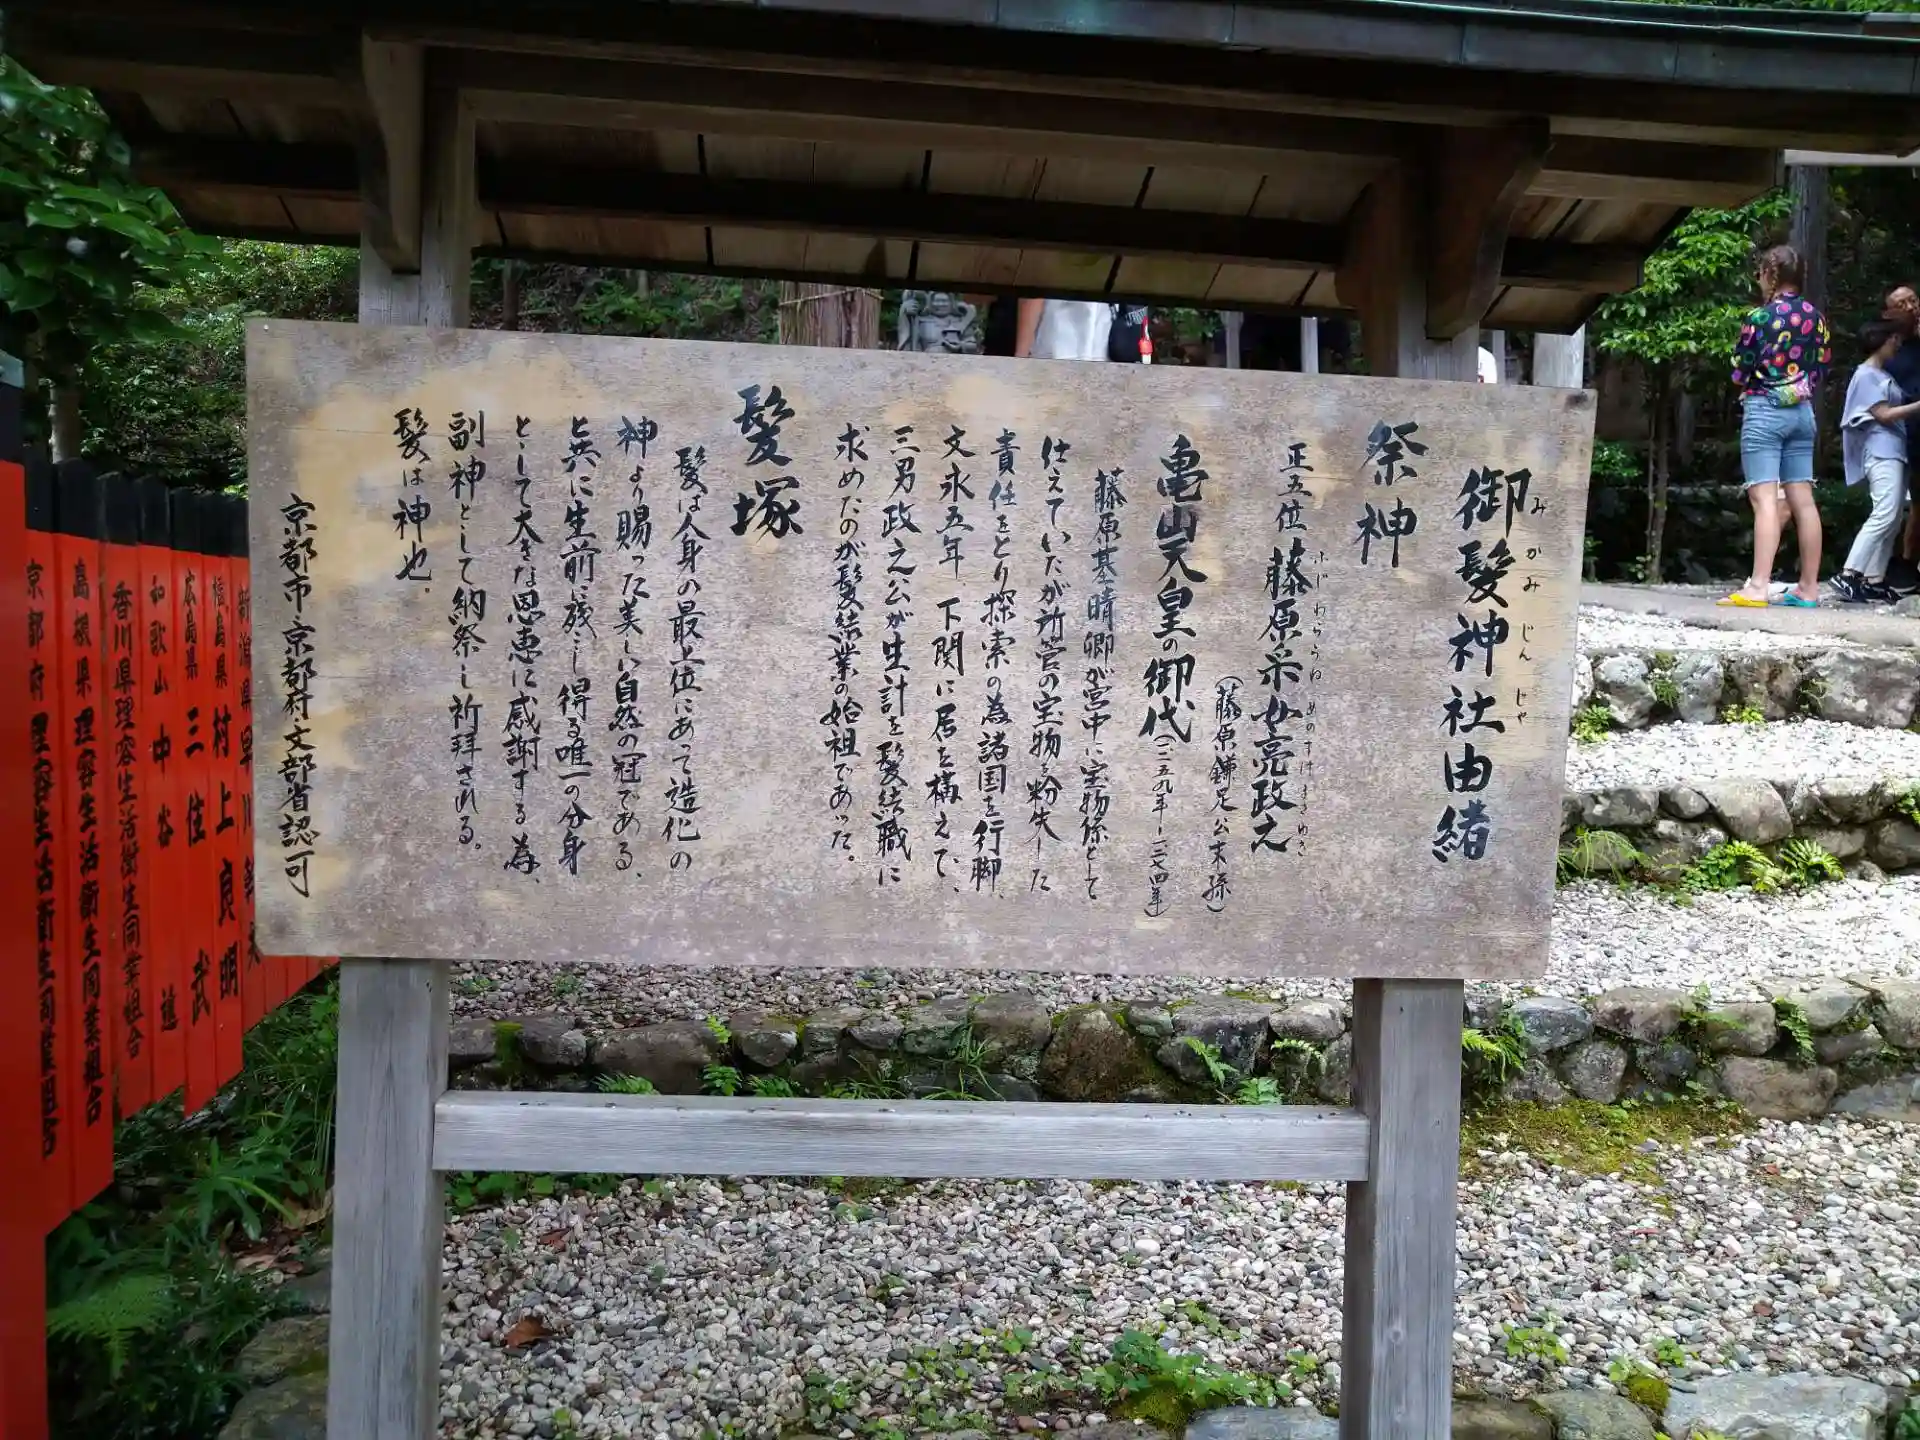 御髪神社由緒
みかみじんじゃ
祭神
正五位 藤原采女亮政之
ふじわらうねめのすけまさゆき
(藤原鎌足公末孫)
亀山天皇の御代(一二五九年ー一二七四年)
藤原基晴卿が宮中に宝物係として
仕えていたが所管の宝物を紛失した
責任をとり探索の為諸国を行脚、
文永五年、下関に居を構えて、
三男政之公が生計を髪結職に
求めたのが髪結業の始祖であった。
髪塚
髪は人身の最上位にあって造化の
神より賜った美しい自然の冠である、
と共に生前に残こし得る唯一の分身
として大きな恩恵に感謝する為、
副神として納祭し祈拝される。
髪は神也.
京都市・京都府・文部省認可
新潟県 早川
徳島県 村上良明
広島県 三住 武
和歌山 中谷
香川県理容生活衛生同業組合
島根県理容生活衛生同業組合
京都府 理容生活衛生同業組合